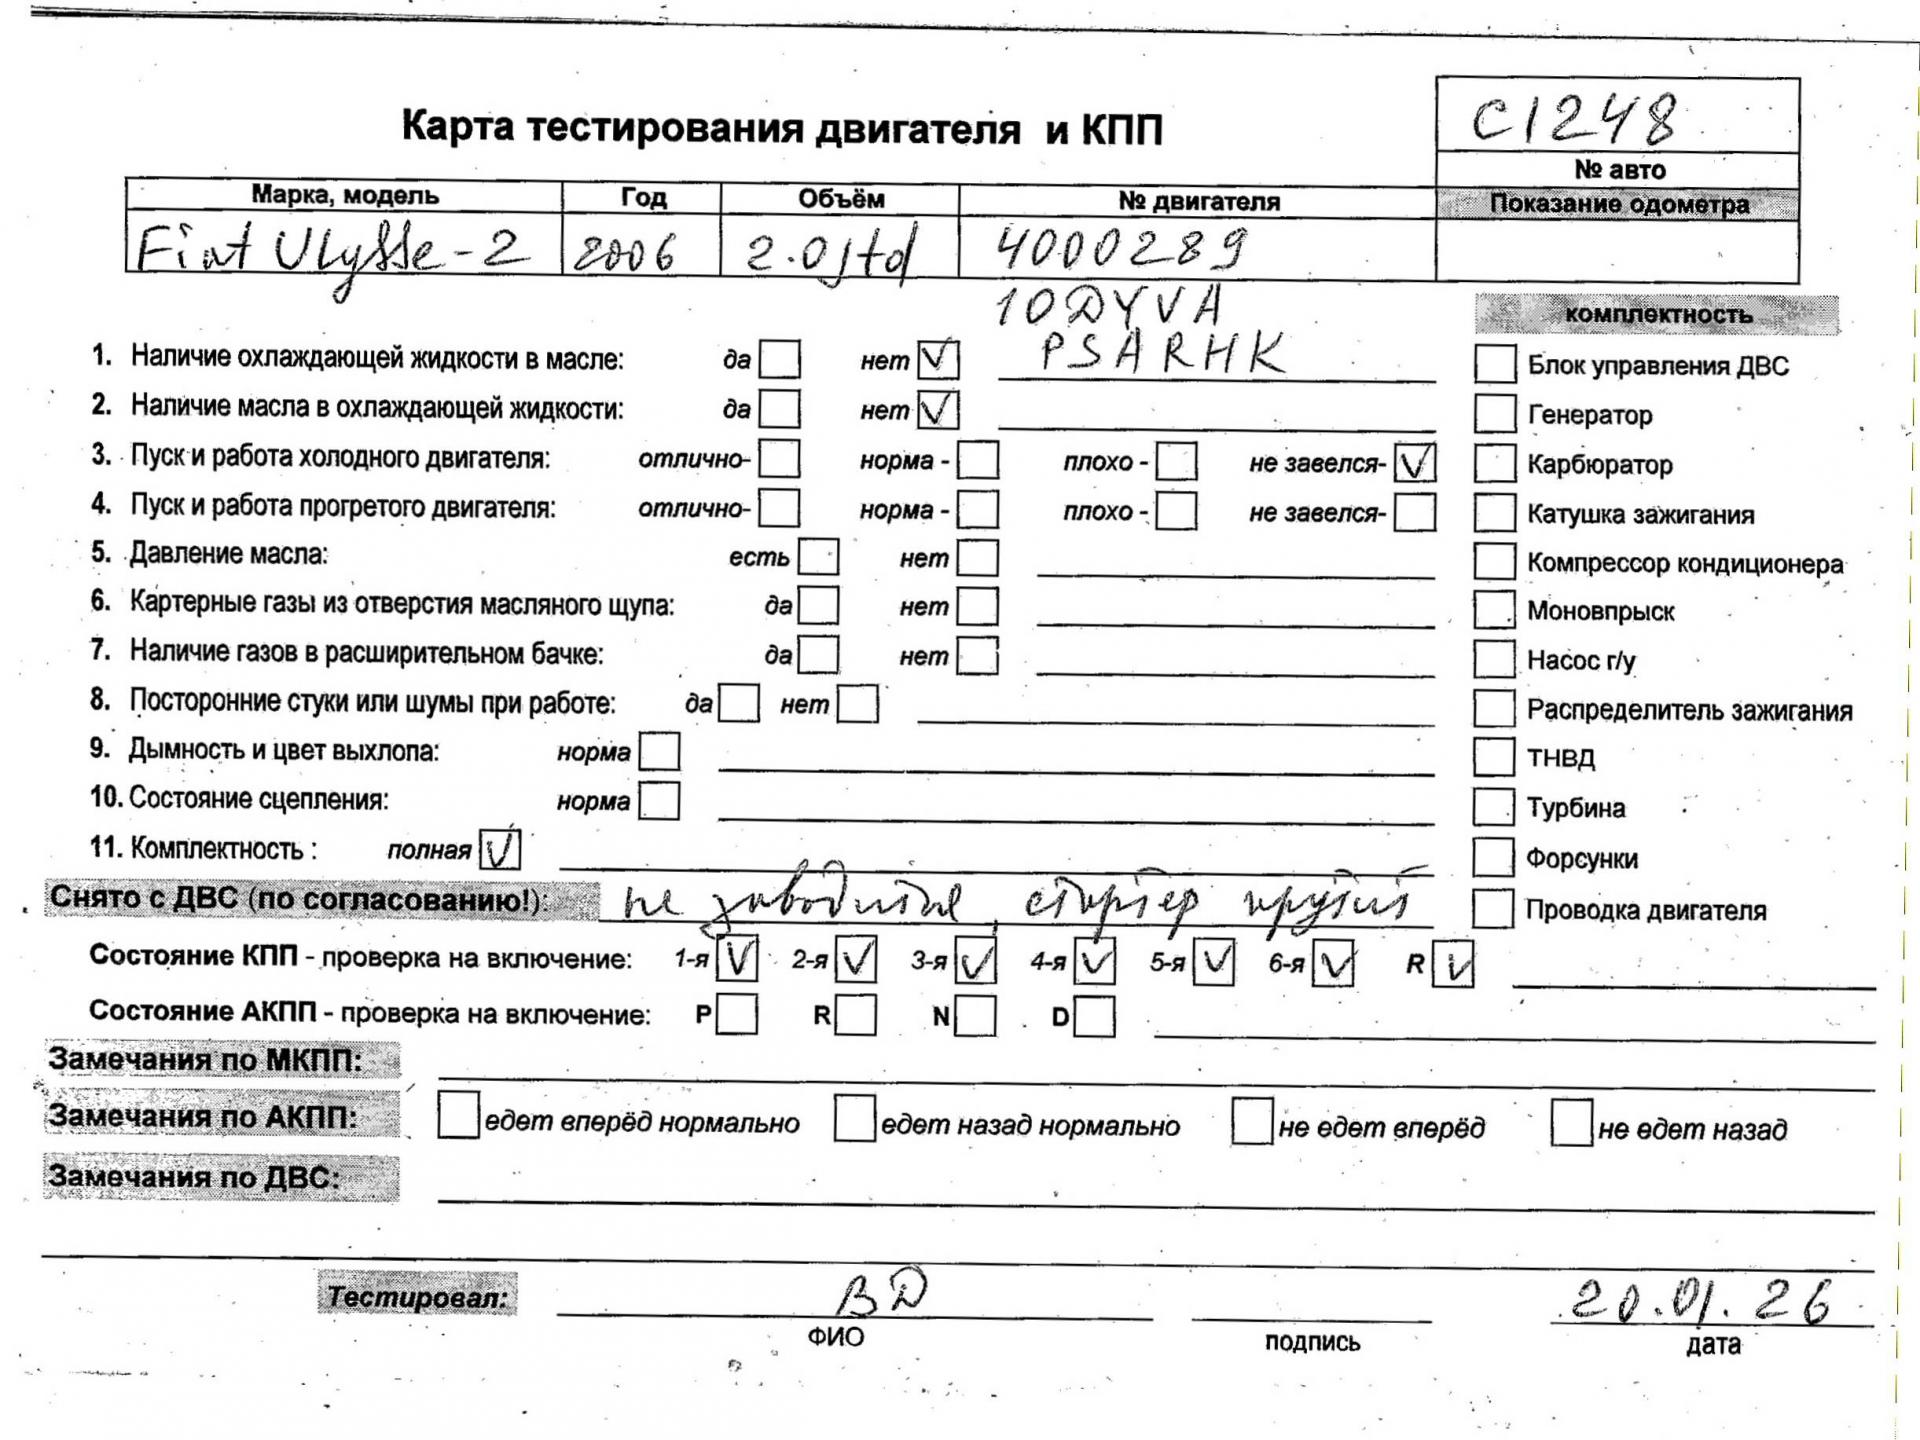 С1248
Карта тестирования двигателя и КПП
№ авто
Марка, модель Год Объём № двигателя Показание одометра
Fiat Ulysse-2 2006 2.0jtd 4000289
10DYVA
PSARHK
комплектность
1. Наличие охлаждающей жидкости в масле: да нет V
Блок управления ДВС
2. Наличие масла в охлаждающей жидкости: да нет V
Генератор
3. Пуск и работа холодного двигателя: отлично- норма - плохо - не завелся- V
Карбюратор
4. Пуск и работа прогретого двигателя: отлично- норма - плохо - не завелся-
Катушка зажигания
5. Давление масла: есть нет
Компрессор кондиционера
6. Картерные газы из отверстия масляного щупа: да нет
Моновпрыск
7. Наличие газов в расширительном бачке: да нет
Насос г/у
8. Посторонние стуки или шумы при работе: да нет
Распределитель зажигания
9. Дымность и цвет выхлопа: норма
ТНВД
10. Состояние сцепления: норма
Турбина
11. Комплектность : полная V
Форсунки
Снято с ДВС (по согласованию!): не заводится, стартер крутит
Проводка двигателя
Состояние КПП - проверка на включение: 1-я V 2-я V 3-я V 4-я V 5-я V 6-я V R V
Состояние АКПП - проверка на включение: P R N D
Замечания по МКПП:
Замечания по АКПП: едет вперёд нормально едет назад нормально не едет вперёд не едет назад
Замечания по ДВС:
Тестировал: ВД 20.01.26
ФИО подпись дата